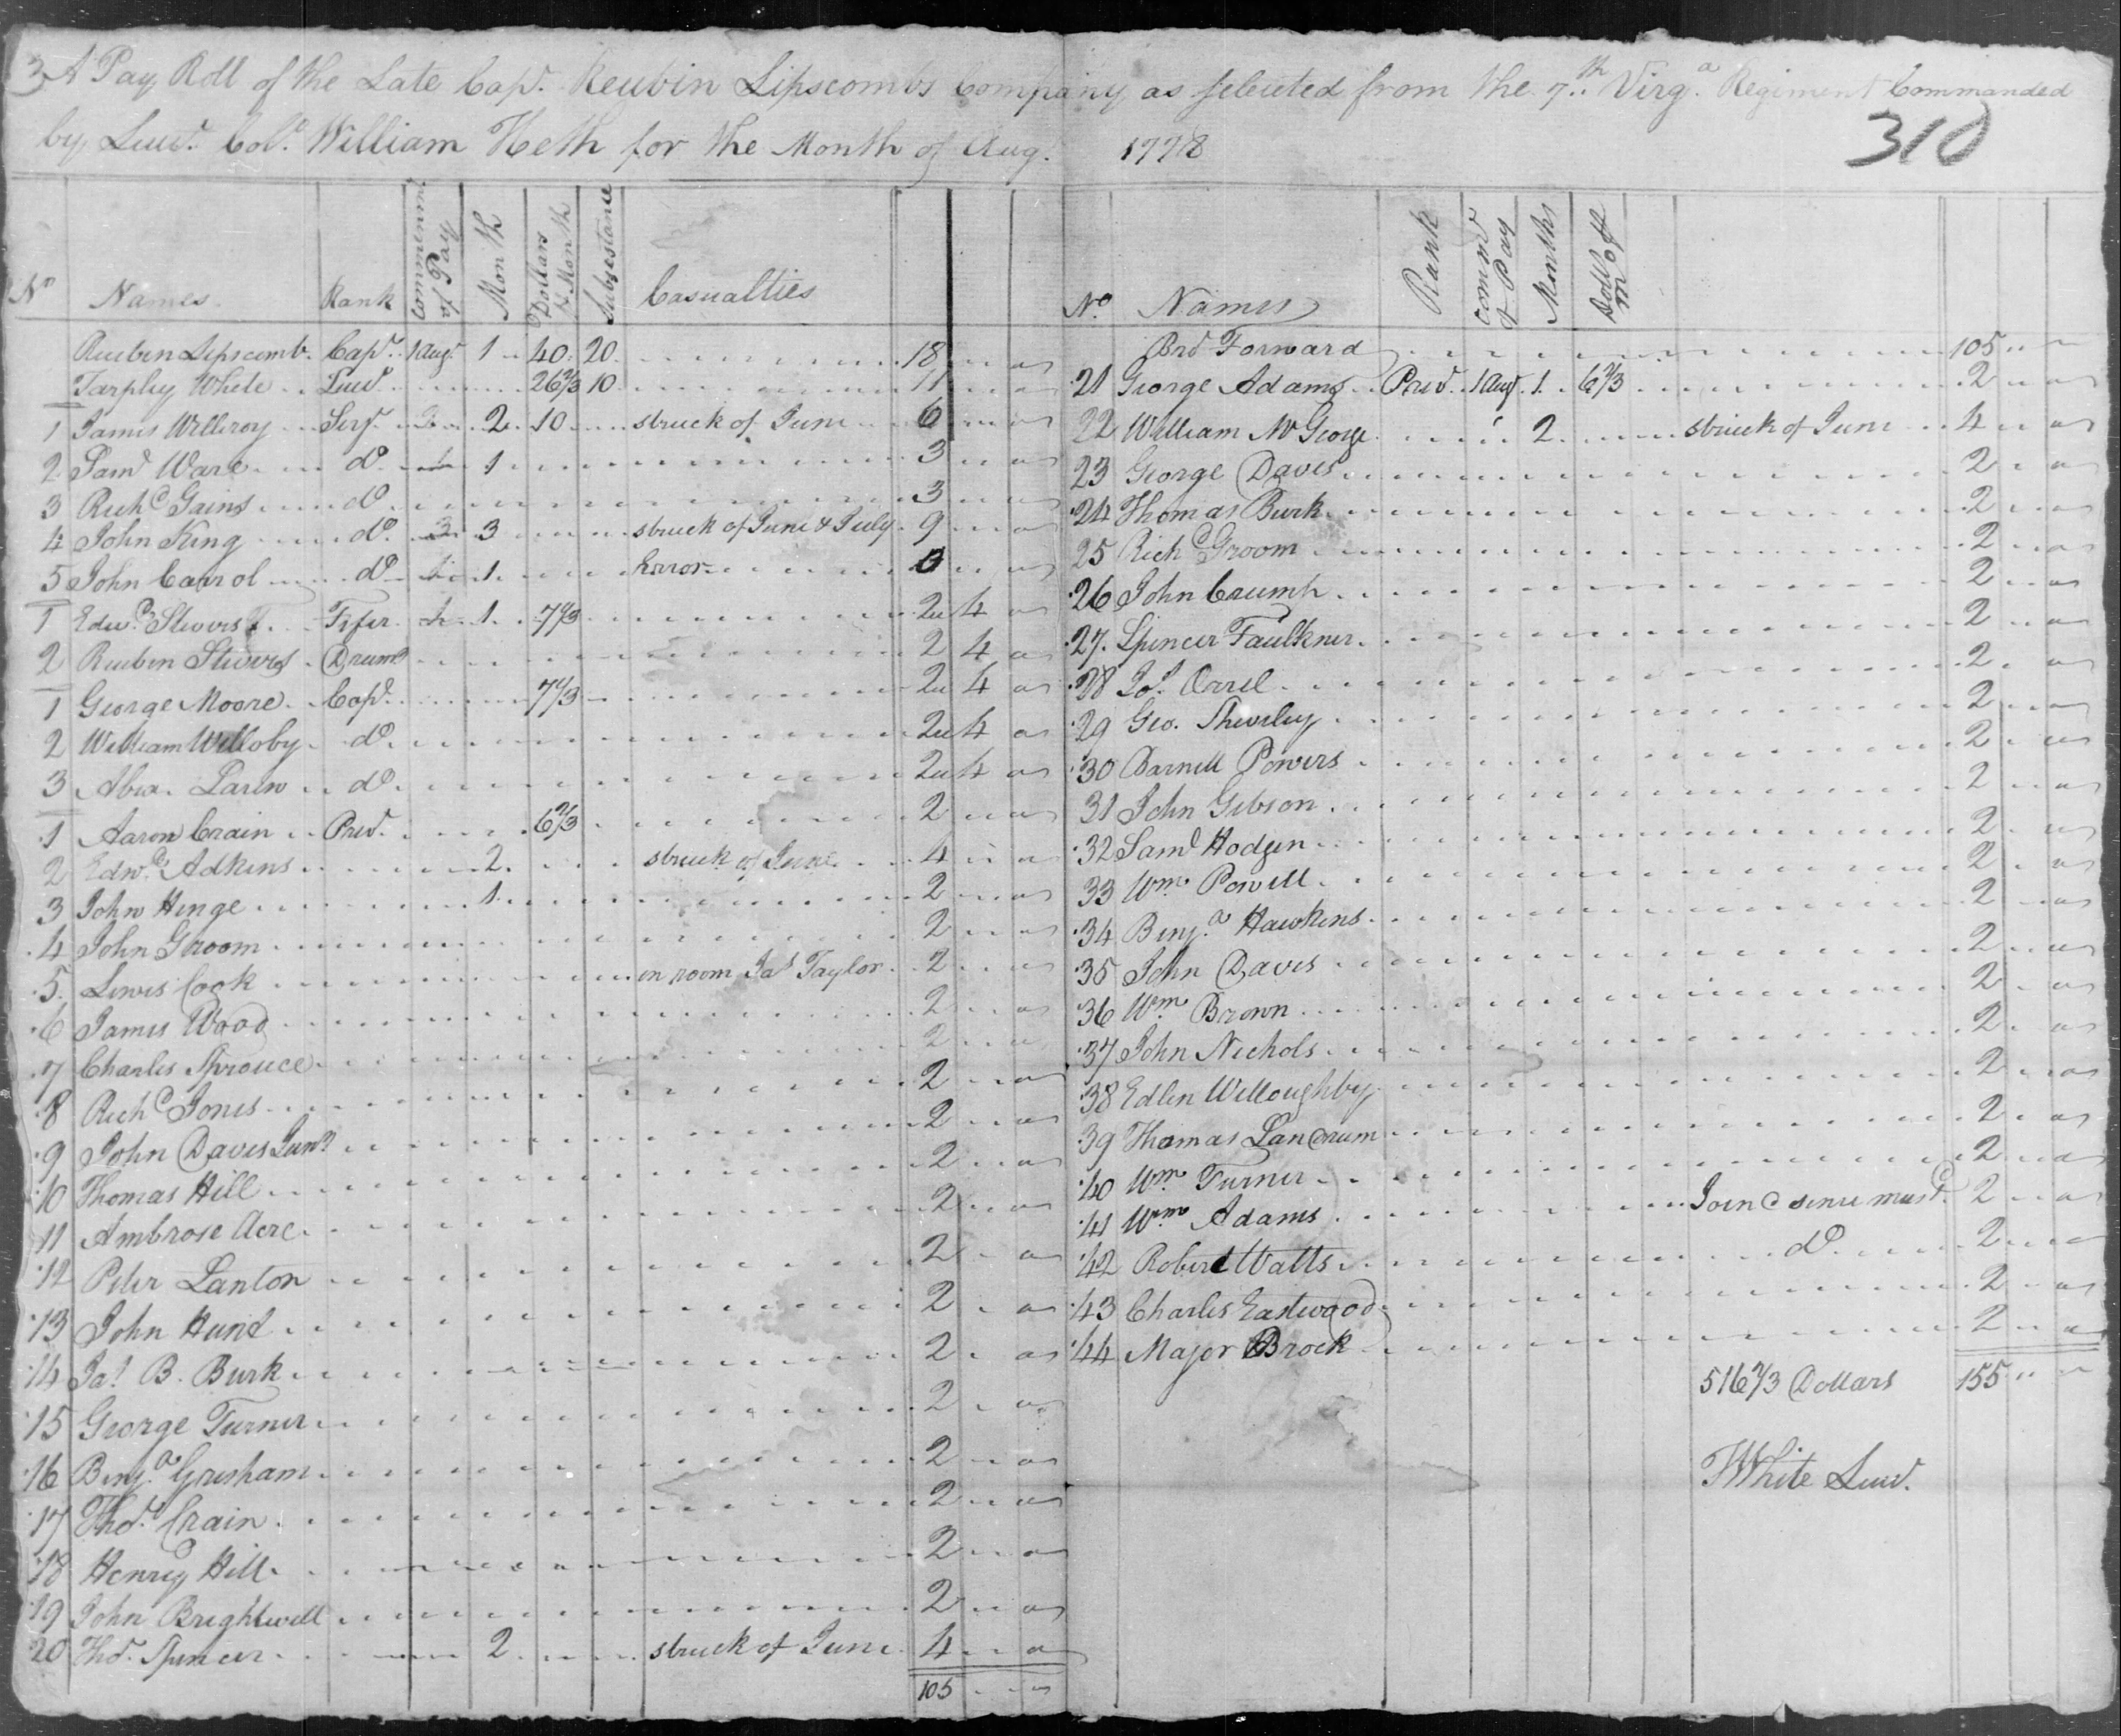 3 A Pay Roll of the Late Capt. Reubin Lipscombs Company as selected from the 7th Virga. Regiment Commanded
by Lieut. Colo. William Heth for the Month of Aug. 1778
310
No Names Rank Commencement of Pay Month Dollars ⅌ Month Subsistance Casualties
Reuben Lipscomb Capt. 1 Augt. 1 40 20 18
Tarpley White Lieut 26 2/3 10 11
1 James Willeroy Serjt. 2 10 struck of June 6
2 Saml Ware do 1 3
3 Richd Gains do 3
4 John King do. 3 struck of June & July 9
5 John Carrol do 1 Error 0
1 Edwd. Stevens Fifer 1 7 1/3 2 4
2 Reuben Stevens Drumr 2 4
1 George Moore Copl. 7 1/3 2 4
2 William Willoby do. 2 4
3 Abra. do. 2 4
1 Aaron Crain Privt. 6 2/3 2
2 Edwd. Adkins 2 struck of June 4
3 John Henge 1 2
4 John Groom 2
5 Lewis Cook in room Jas Taylor 2
6 James Wood 2
7 Charles Sprouce 2
8 Richd Jones 2
9 John Davis Junr 2
10 Thomas Hill 2
11 Ambrose Acre 2
12 Peter Lanton 2
13 John Hunt 2
14 Jas. B. Burk 2
15 George Turner 2
16 Benja. Grisham 2
17 Thos. Crain 2
18 Henry Hill 2
19 John Brightwell 2
20 Thos. Spencer 2 struck of June 4
105
No. Names Rank Commt of Pay Months Dolls ⅌ M
Brot Forward 105
21 George Adams Privt. 1 Augt. 1 6 2/3 2
22 William McGeorge 2 struck of June 4
23 George Davis 2
24 Thomas Burk 2
25 Richd Groom 2
26 John Crump 2
27 Spencer Faulkner 2
28 Jas. Orrel 2
29 Geo. Sheurley 2
30 Darnell Powers 2
31 John Gibson 2
32 Saml Hodgen 2
33 Wm. Powell 2
34 Benja. Hawkins 2
35 John Davis 2
36 Wm. Brown 2
37 John Nichols 2
38 Edlin Willoughby 2
39 Thomas Landrum 2
40 Wm. Turner 2
41 Wm. Adams Joind since mustd 2
42 Robert Watts do 2
43 Charles Eastwood 2
44 Major Brock 2
516 2/3 Dollars 155
TWhite Lieut.